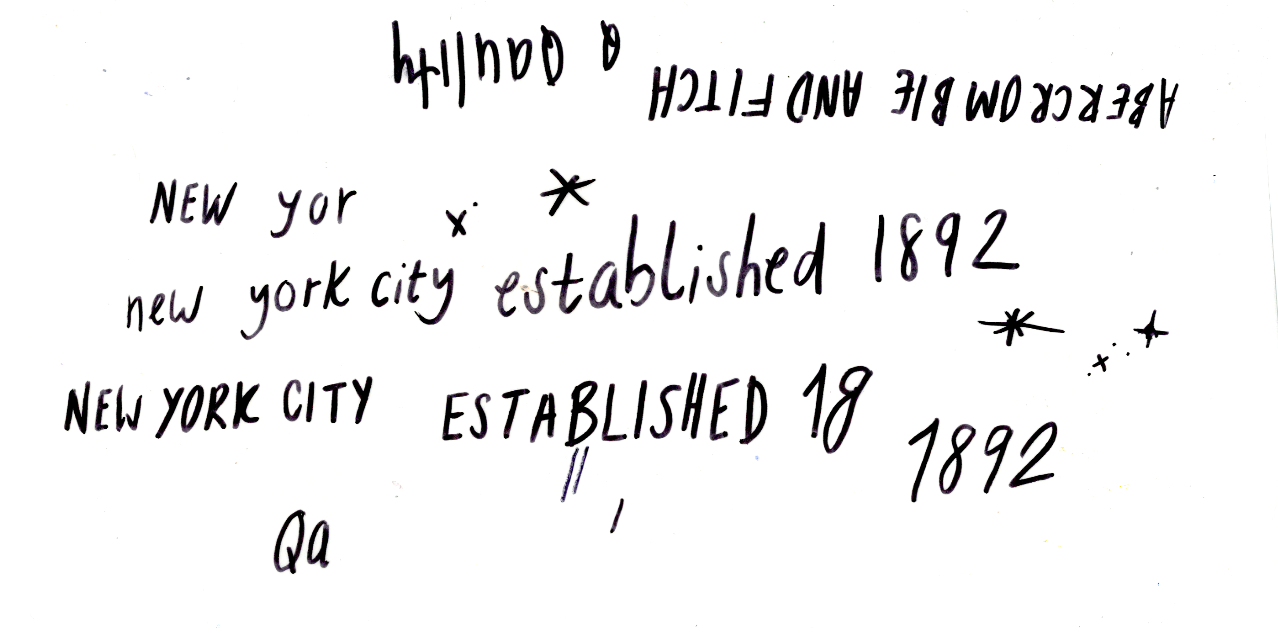 ABERCROMBIE AND FITCH
Q Qaulity
NEW yor
new york city established 1892
NEW YORK CITY ESTABLISHED 18
1892
Qa